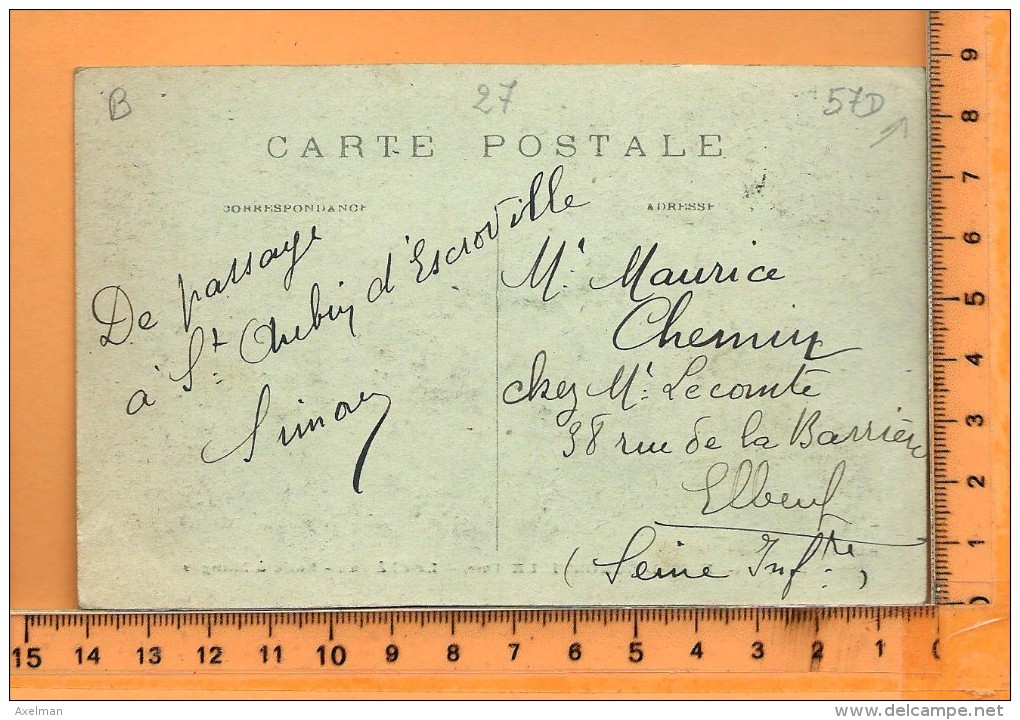 B
27
57D
CARTE POSTALE
CORRESPONDANCE
ADRESSE
De passage
à St. Aubin d'Escroville
Simon
Mr. Maurice
Chemin
chez Mr. Lecomte
38 rue de la Barrière
Elbeuf
(Seine Infre.)
9
8
7
6
5
4
3
2
1
0
15 14 13 12 11 10 9 8 7 6 5 4 3 2 1 0
Axelman
www.delcampe.net